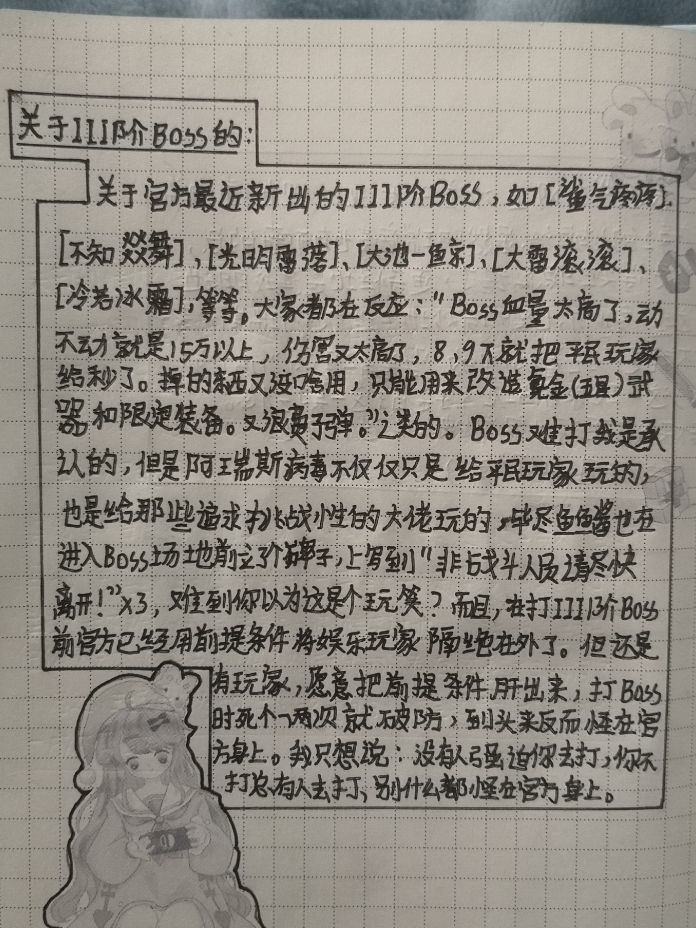 关于III阶Boss的:
关于官方最近新出的III阶Boss，如[鲨气疼疼]、
[不知燚舞]、[光明雷落]、[大池一鱼京]、[大雷滚滚]、
[冷若冰霜],等等。大家都在反应："Boss血量太高了,动
不动就是15万以上，伤害又太高了，8、9下就把平民玩家
给秒了。掉的东西又没啥用，只能用来改造氪金(五星)武
器和限定装备。又浪费子弹。"之类的。Boss又难打我是承
认的，但是阿瑞斯病毒不仅仅只是给平民玩家玩的，
也是给那些追求挑战性的大佬玩的，毕尽鱼鱼酱也在
进入Boss场地前立了个牌子，上写到"非战斗人员请尽快
离开!"x3，难到你以为这是个玩笑？而且，在打III阶Boss
前官方已经用前提条件将娱乐玩家隔绝在外了。但还是
有玩家，愿意把前提条件肝出来，打Boss
时死个一两次就破防，到头来反而怪在官
方身上。我只想说：没有人强迫你去打，你不
打总有人去打，别什么都怪在官方身上。